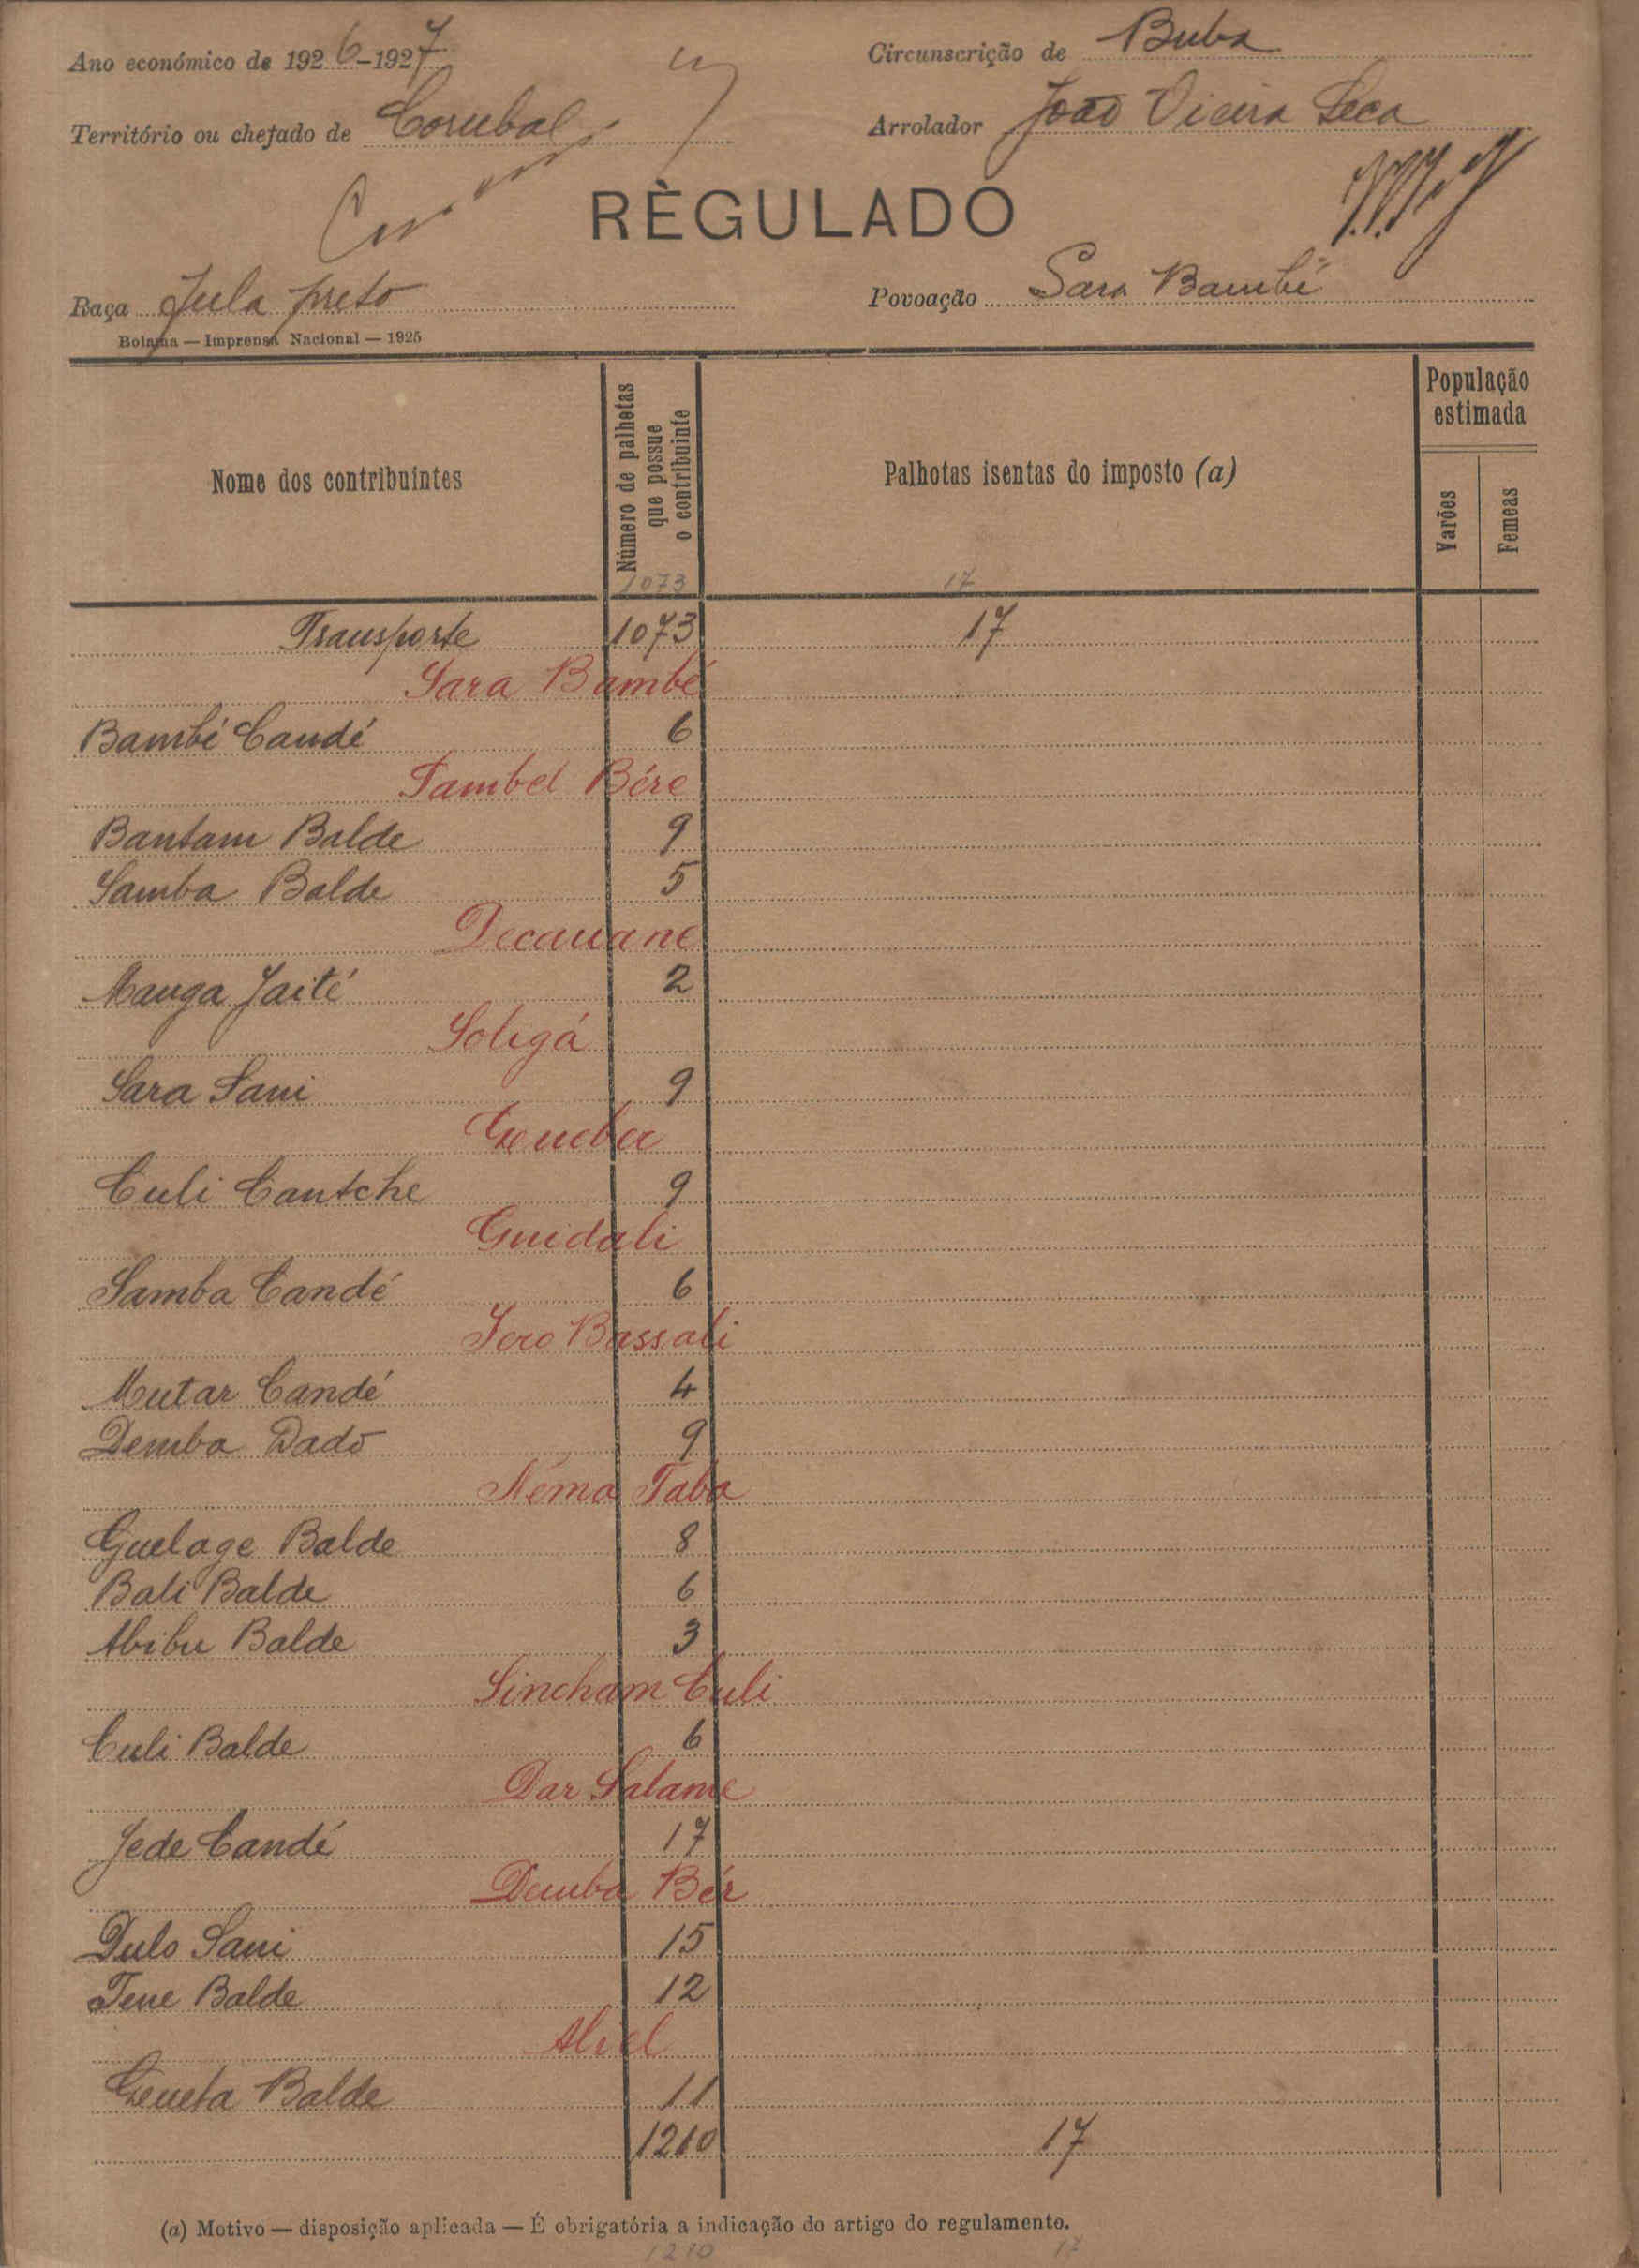 Ano económico de 1926-1927
Circunscrição de Buba
Território ou chefado de Corubal
Arrolador João Vieira Seca
RÈGULADO
Raça Fula preto
Povoação Sara Bambé
Bolama — Imprensa Nacional — 1925
Nome dos contribuintes
Número de palhetas
que possue
o contribuinte
Palhotas isentas do imposto (a)
População
estimada
Varões
Femeas
1073 17
Transporte 1073 17
Sara Bambé
Bambé Candé 6
Sambel Bére
Bantam Balde 9
Samba Balde 5
Decauane
Manga Jaité 2
Soligá
Sara Sani 9
Culi Cantche 9
Guidali
Samba Candé 6
Jero Bassali
Mutar Candé 4
Demba Dadо 9
Néma Taba
Guelage Balde 8
Bali Balde 6
Abibu Balde 3
Sincham Culi
Culi Balde 6
Dar Salame
Jede Candé 17
Demba Bér
Dulo Sani 15
Tene Balde 12
Aliel
Balde 11
1210 17
(a) Motivo — disposição aplicada — É obrigatória a indicação do artigo do regulamento.
1210 17